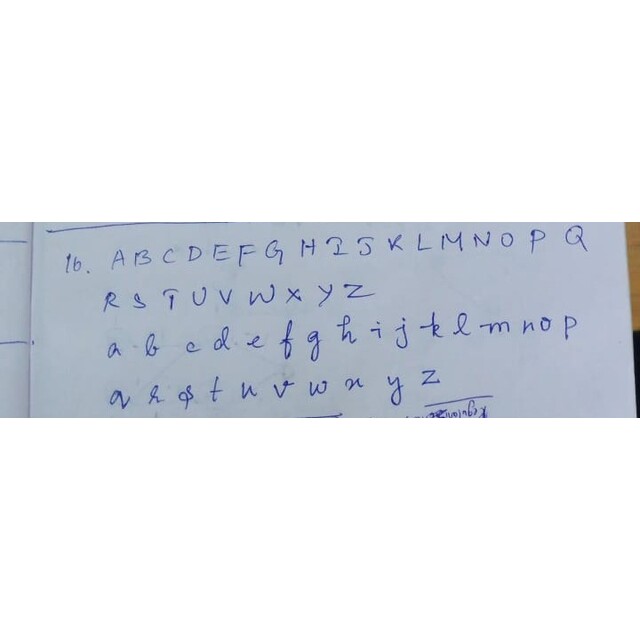 16. A B C D E F G H I J K L M N O P Q
R S T U V W X Y Z
a b c d e f g h i j k l m n o p
q r s t u v w x y z